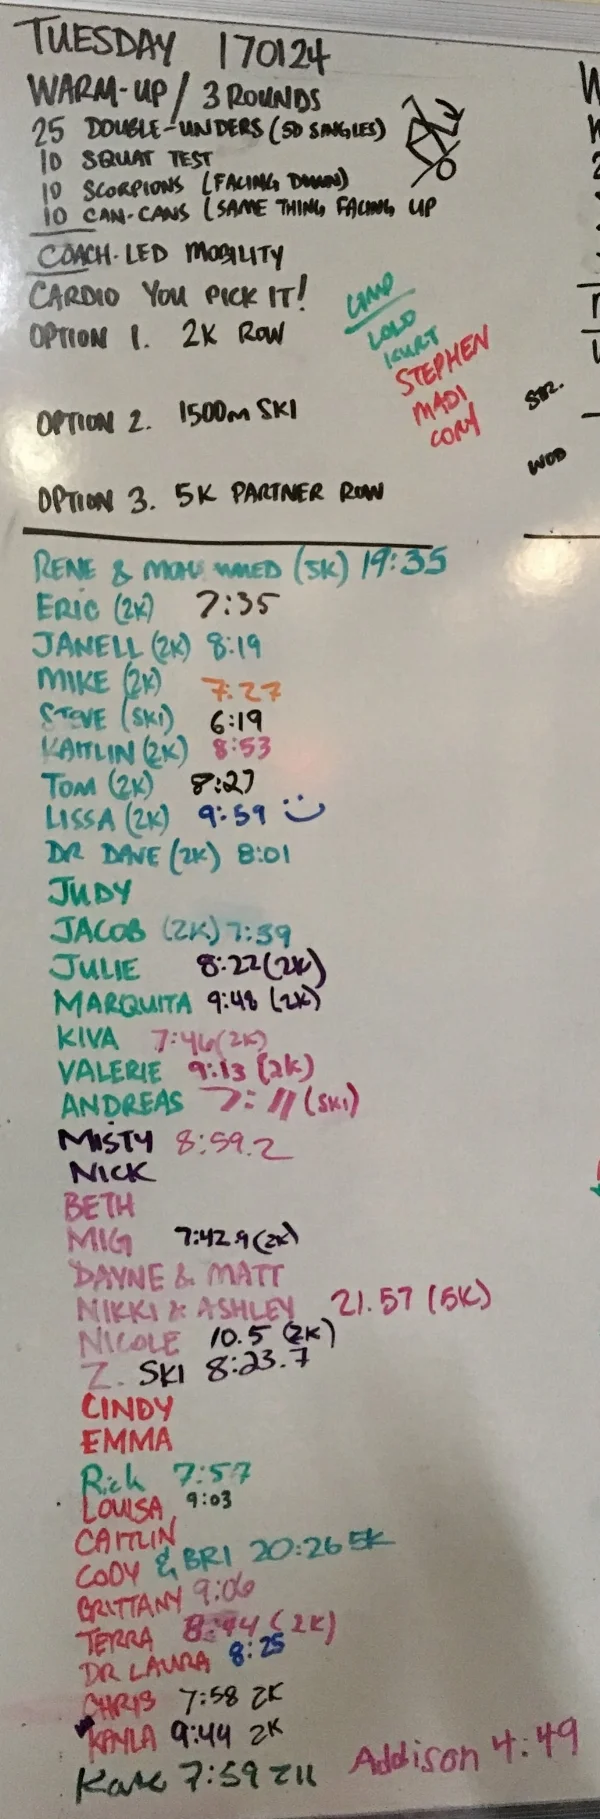 TUESDAY 170124
WARM-UP / 3 ROUNDS
25 DOUBLE-UNDERS (50 SINGLES)
10 SQUAT TEST
10 SCORPIONS (FACING DOWN)
10 CAN-CANS (SAME THING FACING UP
COACH-LED MOBILITY
CARDIO YOU PICK IT!
OPTION 1. 2K ROW
LOLO
KURT
STEPHEN
MADI
CORY
OPTION 2. 1500m SKI
OPTION 3. 5K PARTNER ROW
STR.
WOD
RENE & MOHAMMED (5K) 19:35
ERIC (2K) 7:35
JANELL (2K) 8:19
MIKE (2K) 7:27
STEVE (SKI) 6:19
KAITLIN (2K) 8:53
TOM (2K) 8:27
LISSA (2K) 9:59
DR DAVE (2K) 8:01
JUDY
JACOB (2K) 7:59
JULIE 8:22 (2K)
MARQUITA 9:48 (2K)
KIVA 7:46 (2K)
VALERIE 9:13 (2K)
ANDREAS 7:11 (SKI)
MISTY 8:59.2
NICK
BETH
MIG 7:42.9 (2K)
DAYNE & MATT
NIKKI & ASHLEY 21.57 (5K)
NICOLE 10.5 (2K)
Z. SKI 8:23.7
CINDY
EMMA
Rick 7:57
LOUISA 9:03
CAITLIN
CODY & BRI 20:26 5K
BRITTANY 9:06
TERRA 8:44 (2K)
DR LAURA 8:25
CHRIS 7:58 2K
KAYLA 9:44 2K
Kate 7:59
Addison 4:49